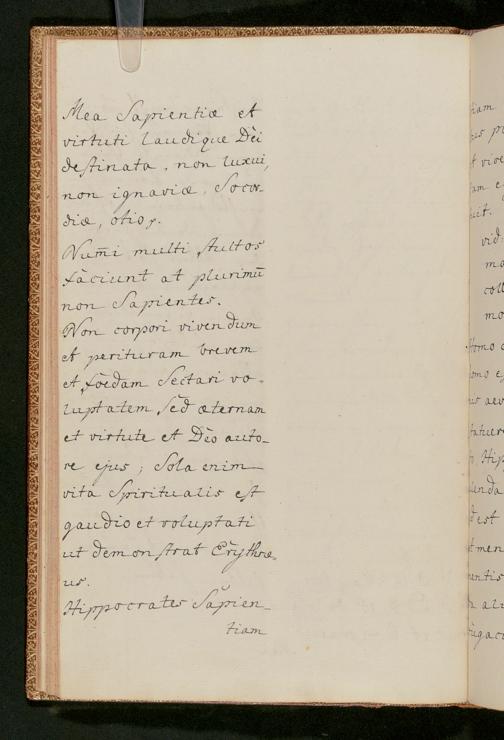 Mea Sapientiæ et
virtuti laudique Dei
destinata, non luxui,
non ignaviæ, Socor-
diæ, otio,.
Num̅i multi stultos
faciunt at plurimū
non Sapientes.
Non corpori vivendum
et perituram brevem
et fœdam Sectari vo-
luptatem, Sed æternam
et virtute et Deo auto-
re ejus; Sola enim
vita Spiritualis est
gaudio et voluptati
ut demonstrat Erythræ-
us.
Hippocrates Sapien-
tiam
tiam
vid:
mo
coll
mo
Homo
Hip